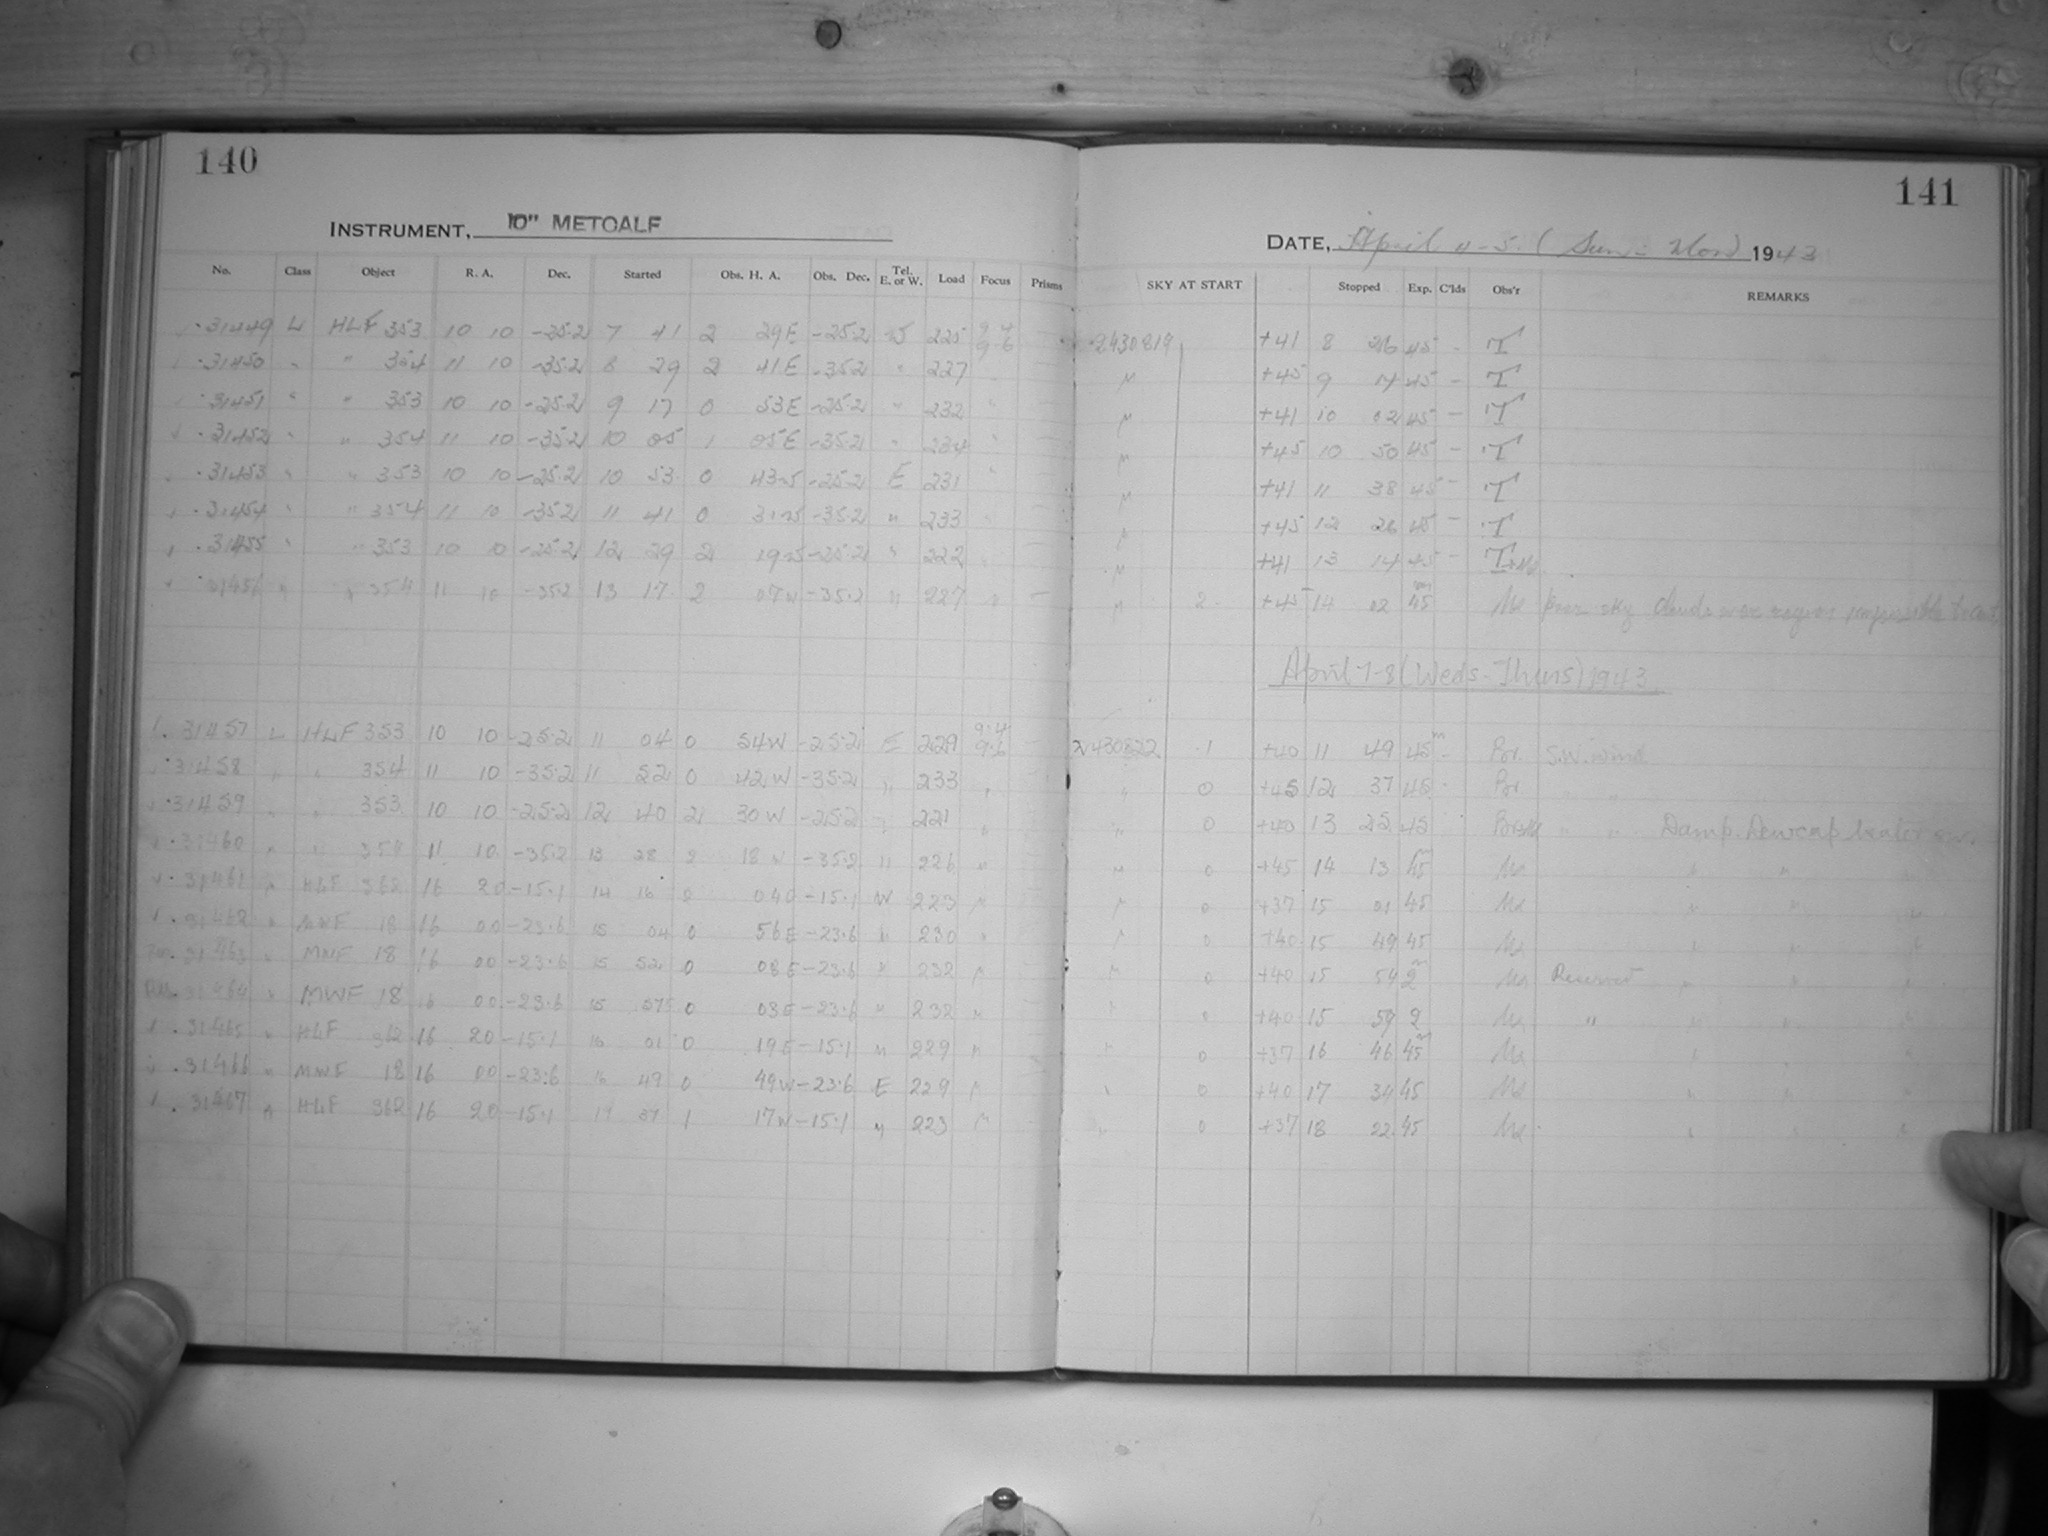 140
141
INSTRUMENT, 10" METCALF
DATE, April 4-5 (Sun-Mon) 1943
No. Class Object R. A. Dec. Started Obs. H. A. Obs. Dec. Tel. E. or W. Load Focus Prisms SKY AT START Stopped Exp. C'lds Obs'r REMARKS
31449 L HLF 353 10 10 -25.2 7 41 2 29E -25.2 W 225 9.4 9.6 - 2430819 +41 8 26 45 - T
31450 " " 354 11 10 -35.2 8 29 2 41E -35.2 " 227 " +45 9 14 45 - T
31451 " " 353 10 10 -25.2 9 17 0 53E -25.2 " 232 " - " +41 10 02 45 - T
31452 " " 354 11 10 -35.2 10 05 1 05E -35.2 " 234 " - " +45 10 50 45 - T
31453 " " 353 10 10 -25.2 10 53 0 43W -25.2 E 231 " - " +41 11 38 45 - T
31454 " " 354 11 10 -35.2 11 41 0 31W -35.2 " 233 " - " +45 12 26 45 - T
31455 " " 353 10 10 -25.2 12 29 2 19W -25.2 " 222 " - " +41 13 14 45 - T
31456 " " 354 11 10 -35.2 13 17 2 07W -35.2 " 227 " - " 2 +45 14 02 45m poor sky clouds over region impossible to
April 7-8 (Weds-Thurs) 1943
31457 L HLF 353 10 10 -25.2 11 04 0 54W -25.2 E 229 9.4 9.6 - 2430822 1 +40 11 49 45m - Br. S.W. wind
31458 " " 354 11 10 -35.2 11 52 0 42W -35.2 " 233 " - " 0 +45 12 37 45 - Br " "
31459 " " 353 10 10 -25.2 12 40 2 30W -25.2 " 221 " " 0 +40 13 25 45 " " Damp. Dewcap heater
31460 " " 354 11 10 -35.2 13 28 2 18W -35.2 " 226 " " 0 +45 14 13 45m " " "
31461 " HLF 362 16 20 -15.1 14 16 2 04 -15.1 W 223 " " 0 +37 15 01 45 " " "
31462 " MWF 18 16 00 -23.6 15 04 0 56E -23.6 " 230 " " 0 +40 15 49 45 " " "
31463 " MWF 18 16 00 -23.6 15 52 0 08E -23.6 " 232 " " 0 +40 15 54 2m Reserved " " "
31464 " MWF 18 16 00 -23.6 15 57 0 03E -23.6 " 232 " " 0 +40 15 59 2 " " " "
31465 " HLF 362 16 20 -15.1 16 01 0 19E -15.1 " 229 " " 0 +37 16 46 45m " " "
31466 " MWF 18 16 00 -23.6 16 49 0 49W -23.6 E 229 " " 0 +40 17 34 45 " " "
31467 " HLF 362 16 20 -15.1 17 37 1 17W -15.1 " 223 " " 0 +37 18 22 45 " " "